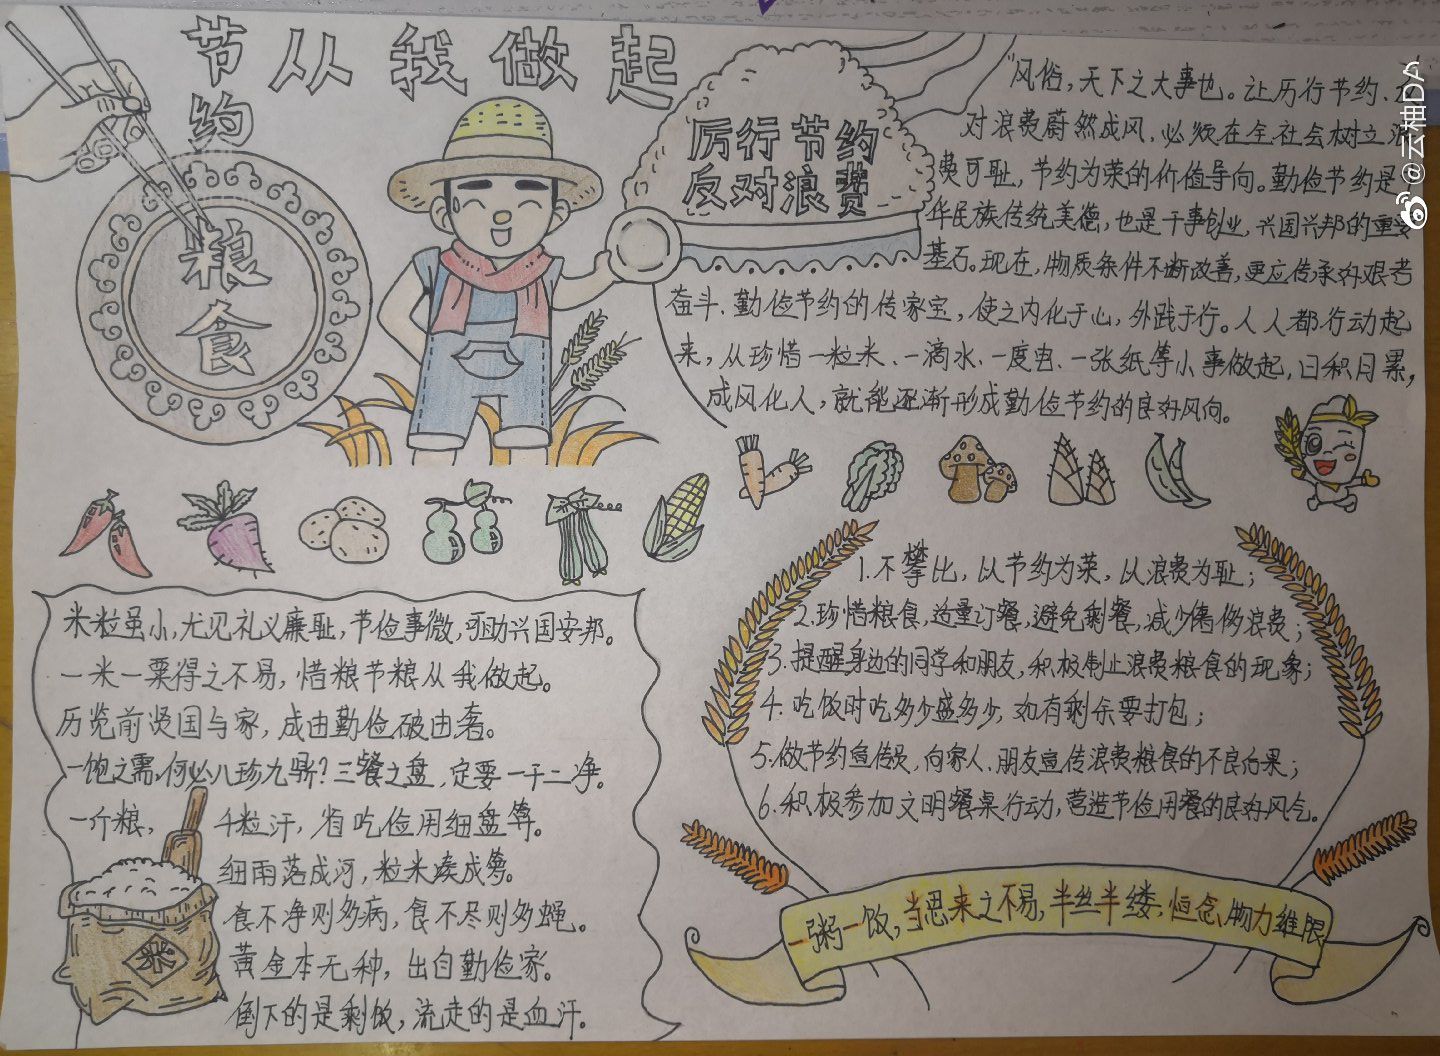 节约粮食
从我做起
厉行节约
反对浪费
"风俗,天下之大事也。让厉行节约、
对浪费蔚然成风,必须在全社会树立浪
费可耻,节约为荣的价值导向。勤俭节约是
华民族传统美德,也是干事创业,兴国兴邦的重要
基石。现在,物质条件不断改善,更应传承好艰苦
奋斗、勤俭节约的传家宝,使之内化于心,外践于行。人人都行动起
来,从珍惜一粒米、一滴水、一度电、一张纸等小事做起,日积月累,
成风化人,就能逐渐形成勤俭节约的良好风向。
米粒虽小,尤见礼义廉耻,节俭事微,可助兴国安邦。
一米一粟得之不易,惜粮节粮从我做起。
历览前贤国与家,成由勤俭破由奢。
一饱之需,何必八珍九鼎?三餐之盘,定要一干二净。
一斤粮,千粒汗,省吃俭用细盘算。
细雨落成河,粒米凑成箩。
食不净则多病,食不尽则多蝇。
黄金本无种,出自勤俭家。
倒下的是剩饭,流走的是血汗。
米
1.不攀比,以节约为荣,以浪费为耻;
2.珍惜粮食,适量订餐,避免剩餐,减少奢侈浪费;
3.提醒身边的同学和朋友,积极制止浪费粮食的现象;
4.吃饭时吃多少盛多少,如有剩余要打包;
5.做节约宣传员,向家人、朋友宣传浪费粮食的不良后果;
6.积极参加文明餐桌行动,营造节俭用餐的良好风气。
一粥一饭,当思来之不易,半丝半缕,恒念物力维限
@云袖DA